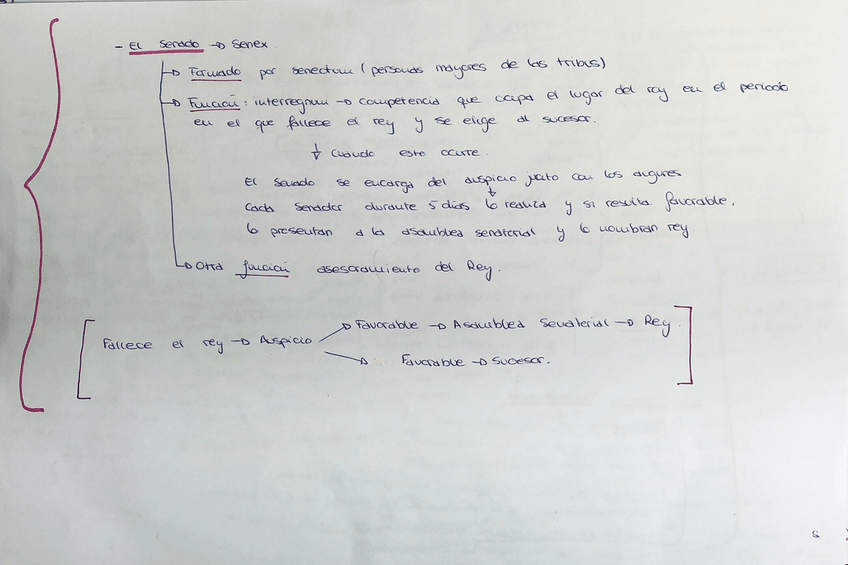 - El Senado → Senex
→ Formado por senectum (personas mayores de las tribus)
→ Función: interregnum → competencia que ocupa el lugar del rey en el periodo
en el que fallece el rey y se elige al sucesor.
↓ Cuando esto ocurre
El senado se encarga del auspicio junto con los augures
Cada senador durante 5 días lo realiza y si resulta favorable,
lo presentan a la asamblea senatorial y lo nombran rey
→ Otra función asesoramiento del Rey.
Fallece el rey → Auspicio
→ Favorable → Asamblea Senatorial → Rey
→ Favorable → Sucesor.
5